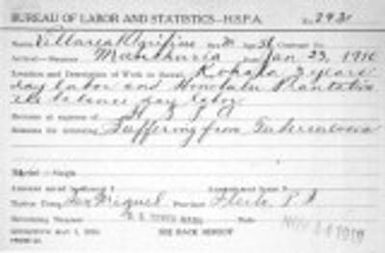 BUREAU OF LABOR AND STATISTICS—H.S.P.A. No. 2931
Name Villareal Agrifino Sex M Age 34 Contract No.
Arrival—Steamer Manchuria Date Jan 23, 1910
Location and Description of Work in Hawaii Kohala 3 years
day labor and Honolulu Plantation
the balance day labor.
Returns at expense of H.S.P.A
Reasons for returning Suffering from Tuberculosis
Married—Single
Native Town San Miguel Province Iloilo P.I.
Returning Steamer Date NOV 14 1919
SEE BACK HEREOF